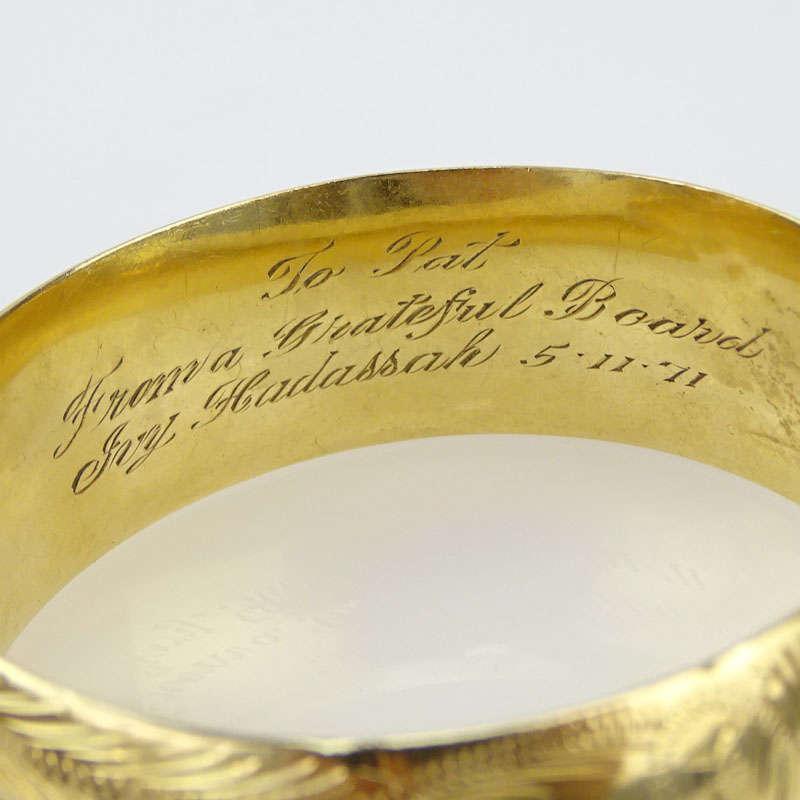 To Pat
From a Grateful Board
Ivy Hadassah 5·11·71